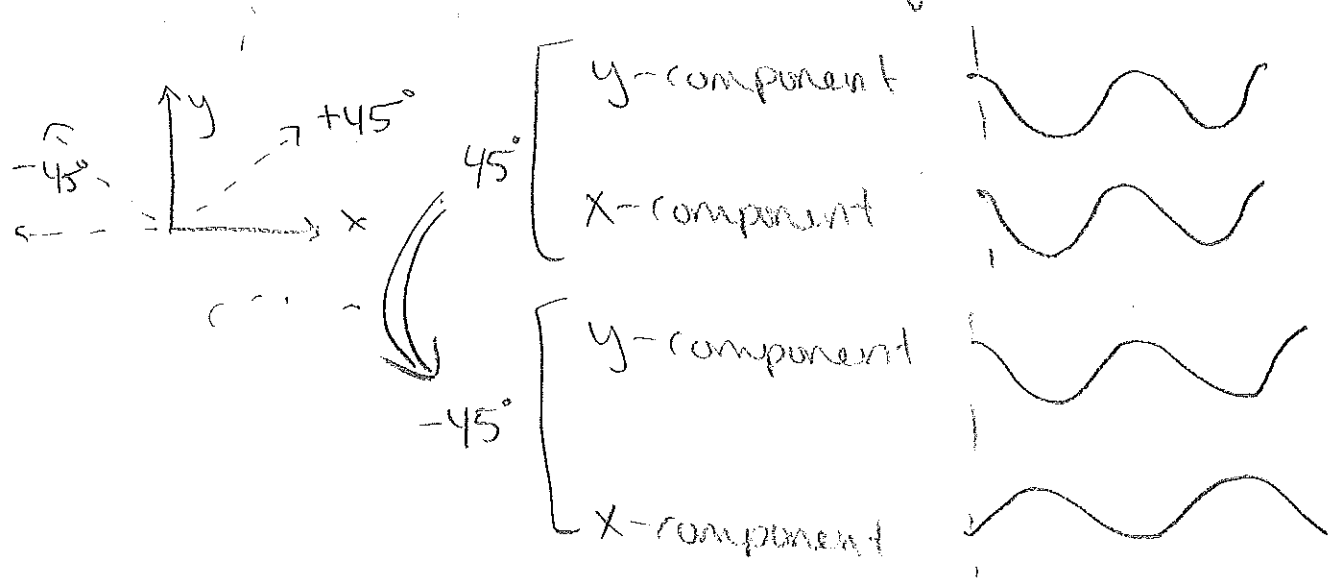 y
+45°
-45°
x
45°
y-component
x-component
-45°
y-component
x-component